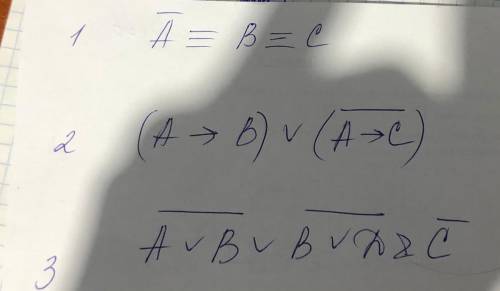 1 A̅ ≡ B ≡ C
2 (A → B) ∨ (A̅ ̅→̅ ̅C̅)
3 A̅ ̅∨̅ ̅B̅ ∨ B̅ ̅∨̅ ̅D̅ & C̅